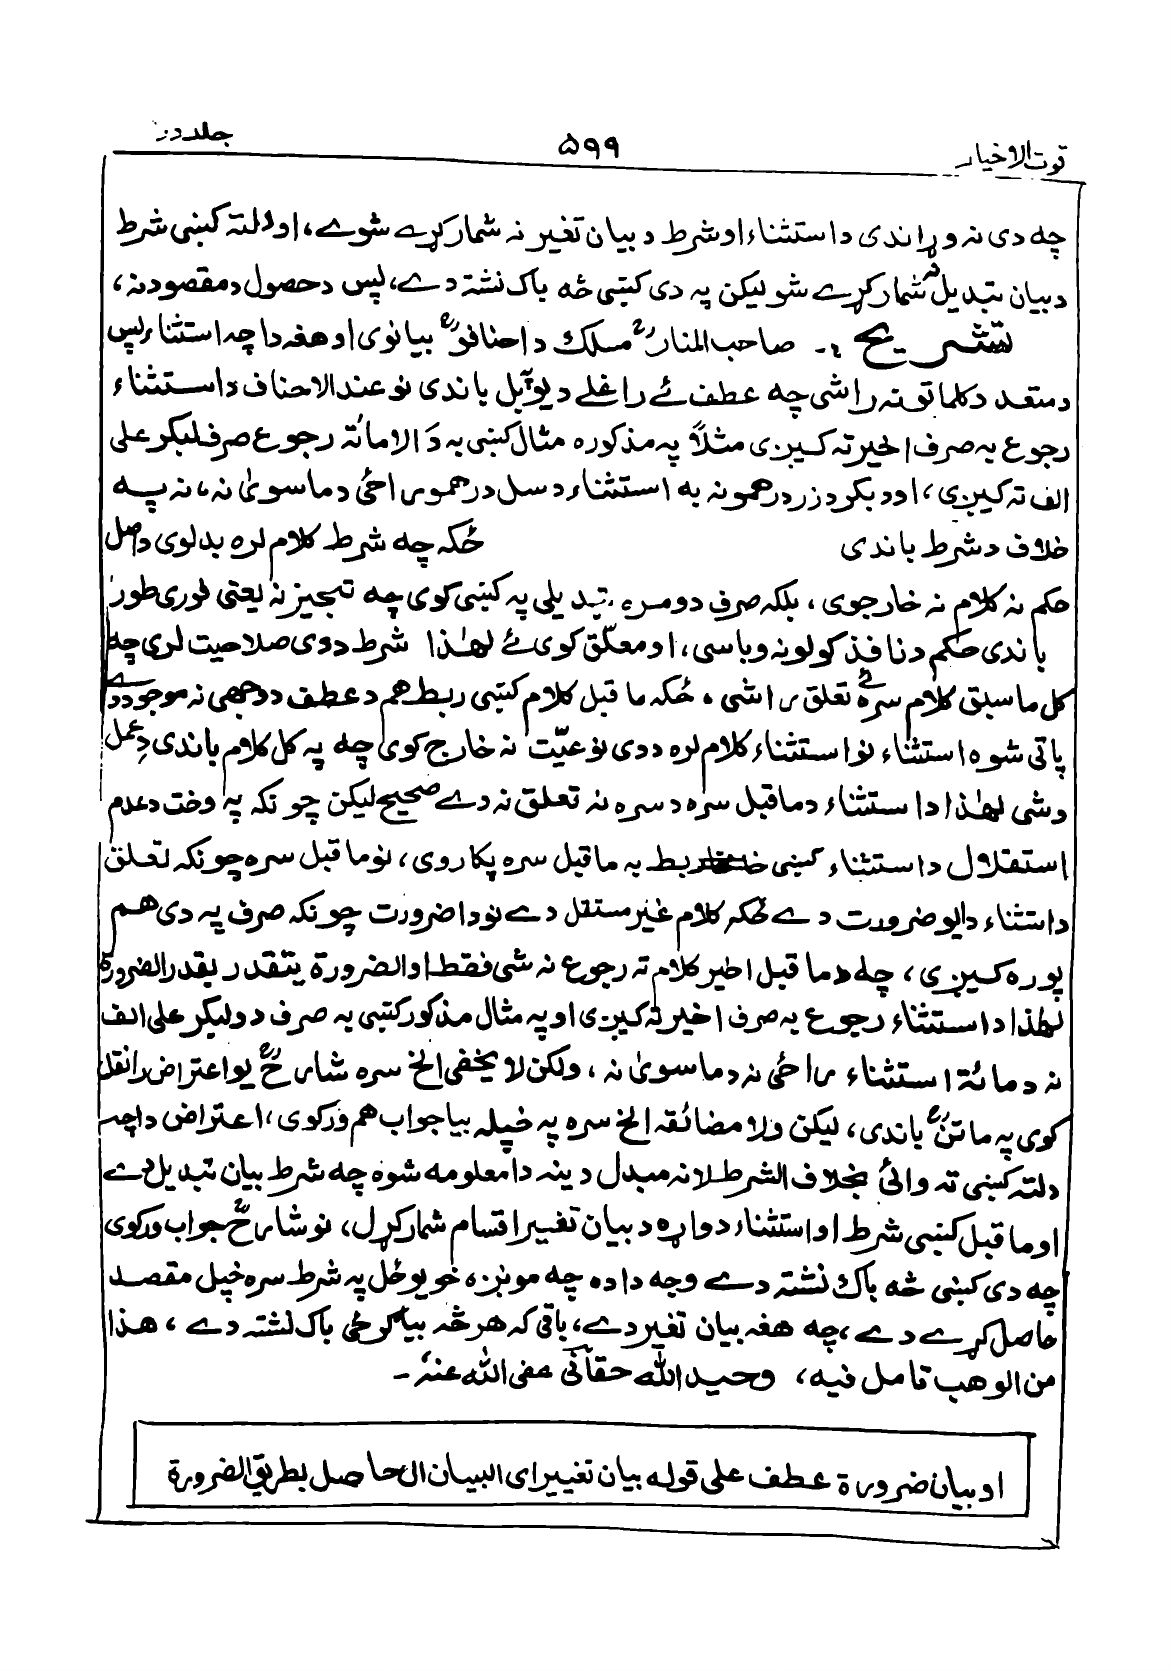 قوت الاخیار ۵۹۹ جلد دوم
چه دی نه وړاندی دا ستثناء او شرط د بیان تغیر نه شمار کړے شوے، او دلته کښی شرط
د بیان تبدیل نه شمار کړے شو لیکن په دی کښی څه باک نشته دے، پس د حصول د مقصود نه،
تشریح :۔ صاحب المنارؒ مسلک د احنافوؒ بیانوی او هغه دا چه استثناء پس
د متعدد کلماتو نه راشی چه عطف ئے راغلے د یو بل باندی نو عند الاحناف د استثناء
رجوع به صرف اخیر ته کیږی مثلاً په مذکوره مثال کښی به دَ الا مائة رجوع صرف لبکر علی
الف ته کیږی، او د بکر د زر درهمونه به استثناء د سل درهمو راځی د ماسوی نه، نه په
خلاف د شرط باندی ځکه چه شرط کلام لره بدلوی د اصل
حکم نه کلام نه خارجوی، بلکه صرف دومره تبدیلی په کښی کوی چه تنجیز نه یعنی فوری طور
باندی حکم د نافذ کولو نه وباسی، او معلّق کوی ئے لهٰذا شرط د دی صلاحیت لری چه
کل ما سبق کلام سره ئے تعلق راشی، ځکه ما قبل کلام کښی ربط هم د عطف د وجهی نه موجود دے
پاتی شوه استثناء نو استثناء کلام لره د دی نوعیّت نه خارج کوی چه په کل کلام باندی دِ عمل
دشی لهٰذا دا ستثناء د ماقبل سره د سره نه تعلق نه دے صحیح لیکن چونکه په وخت د عدم
استقلال د استثناء کښی ربط به ما قبل سره پکاروی، نو ما قبل سره چونکه تعلق
د استثناء د ایو ضرورت دے ځکه کلام غیر مستقل دے نو دا ضرورت چونکه صرف په دی هم
پوره کیږی، چه د ما قبل اخیر کلام ته رجوع نه شی فقط او الضرورة یتقدر بقدر الضرورة
لهٰذا دا ستثناء رجوع به صرف اخیر ته کیږی او په مثال مذکور کښی به صرف د ولبکر علی الف
نه د مائة استثناء راځی نه د ماسوی نه، ولکن لا یخفی الخ سره شارحؒ یو اعتراض را نقل
کوی په ماتنؒ باندی، لیکن ولا مضائقه الخ سره په خپله بیا جواب هم ورکوی، اعتراض دا چه
دلته کښی ته وائی بخلاف الشرط لانه مبدل د ینه دا معلومه شوه چه شرط بیان تبدیل دے
او ما قبل کښی شرط او استثناء دواړه د بیان تغییر اقسام شمار کړل، نو شارحؒ جواب ورکوی
چه دی کښی څه باک نشته دے وجه دا ده چه مونږه، خو یو ځل په شرط سره خپل مقصد
حاصل کړے دے، چه هغه بیان تغیر دے، باقی که هر څه بیا کړځی باک نشته دے، هذا
من الوهب تامل فیه، وحید الله حقانی عفی الله عنه ۔
او بیان ضرورة عطف علی قوله بیان تغییر ای البیان الحاصل بطریق الضرورة